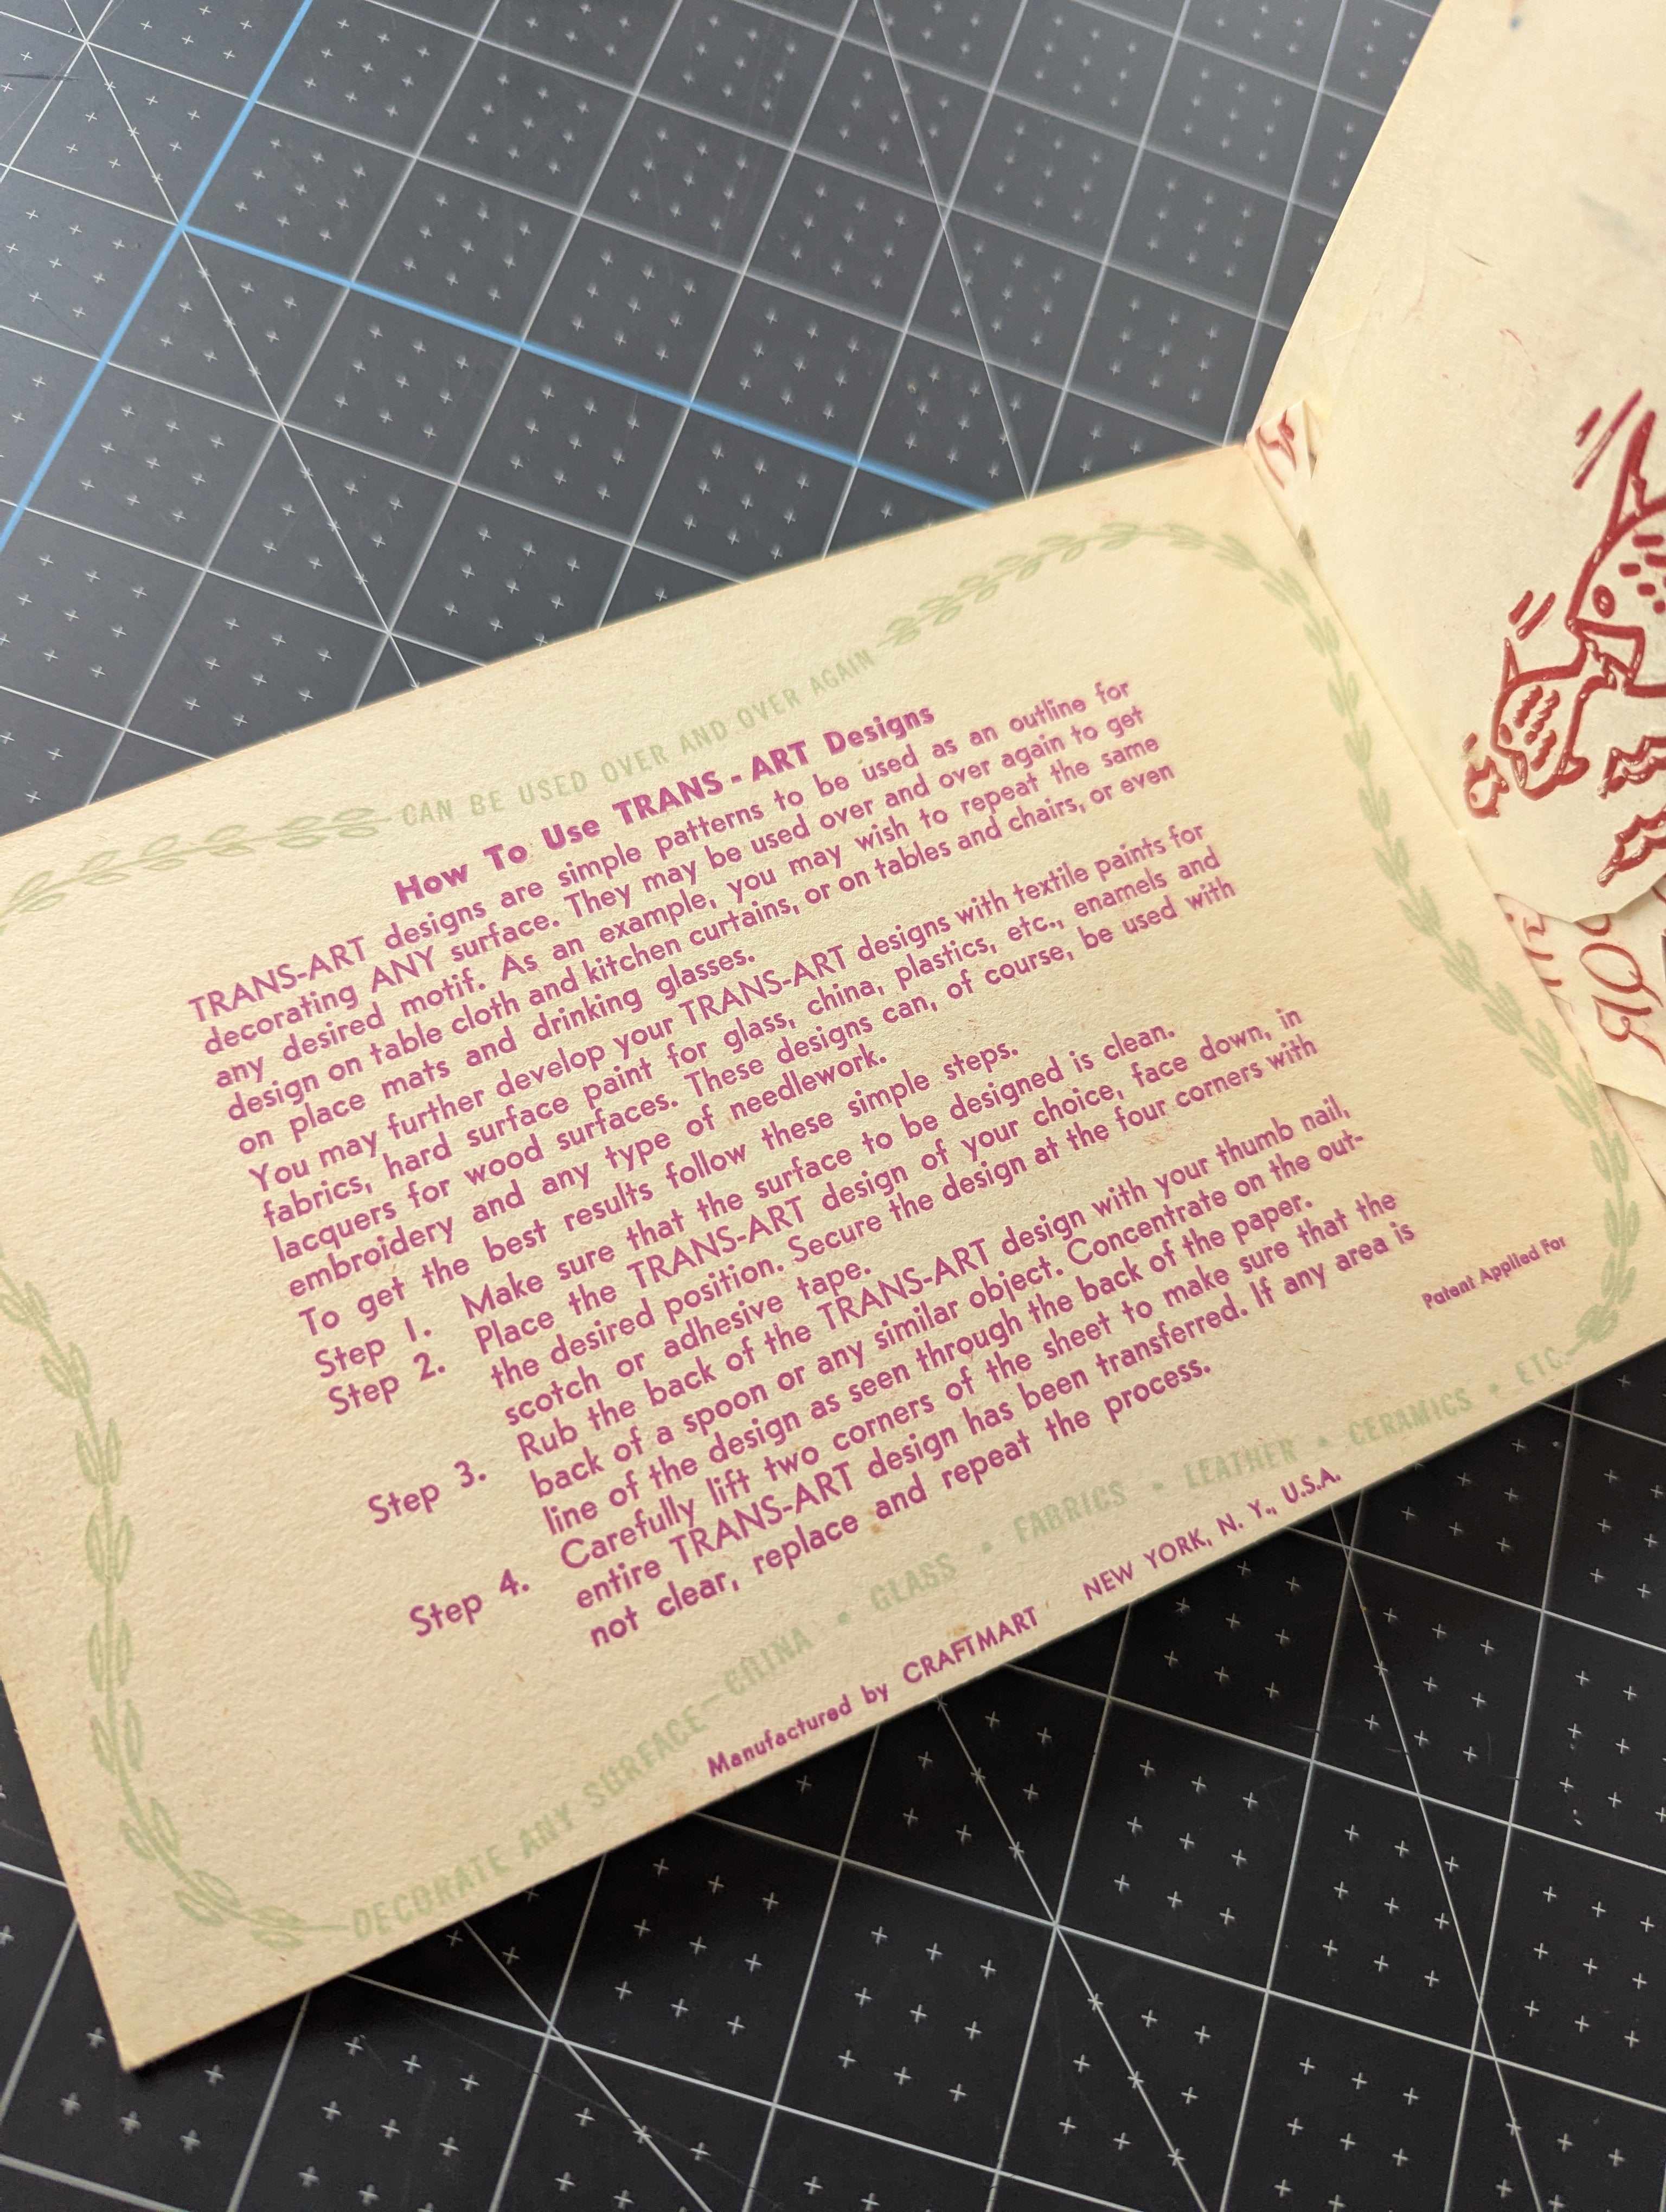 CAN BE USED OVER AND OVER AGAIN
How To Use TRANS-ART Designs
TRANS-ART designs are simple patterns to be used as an outline for
decorating ANY surface. They may be used over and over again to get
any desired motif. As an example, you may wish to repeat the same
design on table cloth and kitchen curtains, or on tables and chairs, or even
on place mats and drinking glasses.
You may further develop your TRANS-ART designs with textile paints for
fabrics, hard surface paint for glass, china, plastics, etc., enamels and
lacquers for wood surfaces. These designs can, of course, be used with
embroidery and any type of needlework.
To get the best results follow these simple steps.
Step 1. Make sure that the surface to be designed is clean.
Step 2. Place the TRANS-ART design of your choice, face down, in
the desired position. Secure the design at the four corners with
scotch or adhesive tape.
Step 3. Rub the back of the TRANS-ART design with your thumb nail,
back of a spoon or any similar object. Concentrate on the out-
line of the design as seen through the back of the paper.
Step 4. Carefully lift two corners of the sheet to make sure that the
entire TRANS-ART design has been transferred. If any area is
not clear, replace and repeat the process.
Patent Applied For
DECORATE ANY SURFACE—CHINA • GLASS • FABRICS • LEATHER • CERAMICS • ETC.
Manufactured by CRAFTMART NEW YORK, N. Y., U.S.A.